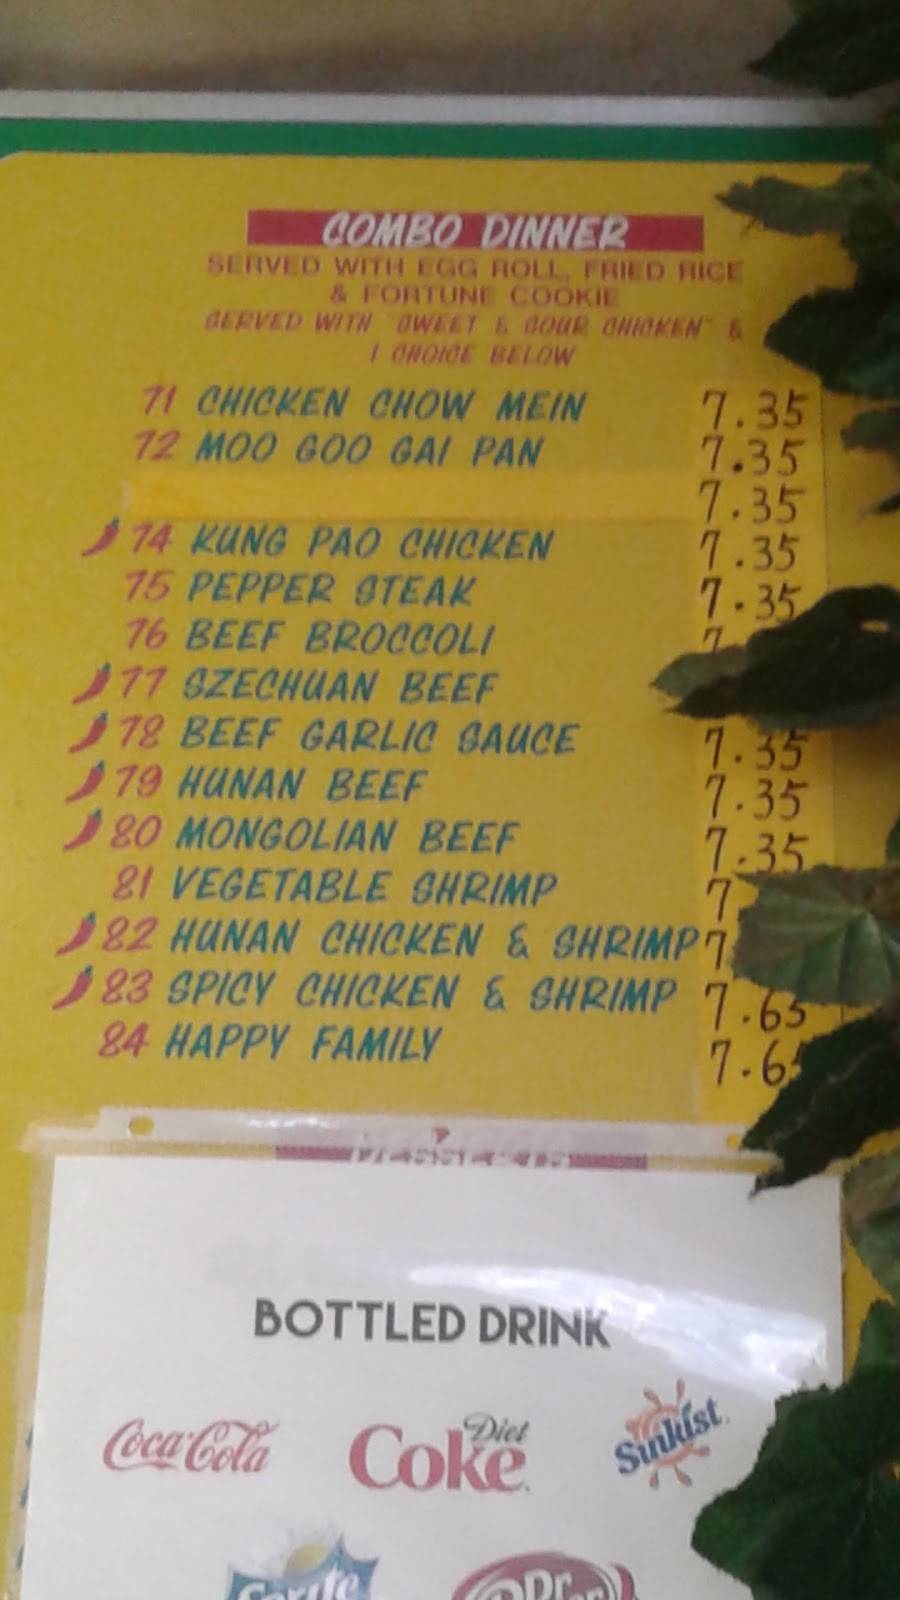 COMBO DINNER
SERVED WITH EGG ROLL, FRIED RICE
& FORTUNE COOKIE
SERVED WITH "SWEET & SOUR CHICKEN" &
1 CHOICE BELOW
71 CHICKEN CHOW MEIN 7.35
72 MOO GOO GAI PAN 7.35
7.35
74 KUNG PAO CHICKEN 7.35
75 PEPPER STEAK 7.35
76 BEEF BROCCOLI 7
77 SZECHUAN BEEF
78 BEEF GARLIC SAUCE 7.35
79 HUNAN BEEF 7.35
80 MONGOLIAN BEEF 7.35
81 VEGETABLE SHRIMP 7
82 HUNAN CHICKEN & SHRIMP 7
83 SPICY CHICKEN & SHRIMP 7.65
84 HAPPY FAMILY 7.65
BOTTLED DRINK
Coca-Cola Diet Coke Sunkist
Sprite Dr Pepper